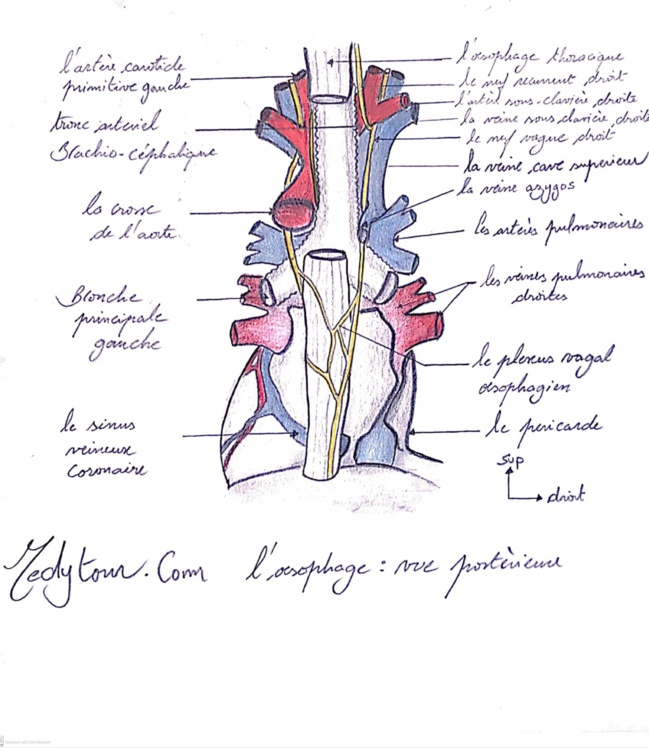 l'artère carotide
primitive gauche
tronc arteriel
Brachio-céphalique
la crosse
de l'aorte
Bronche
principale
gauche
le sinus
veineux
coronaire
l'œsophage thoracique
le nerf récurrent droit
l'artère sous-clavière droite
la veine sous clavière droite
le nerf vague droit
la veine cave superieur
la veine azygos
les artères pulmonaires
les veines pulmonaires
droites
le plexus vagal
œsophagien
le pericarde
Sup
droit
Medytour.Com l'œsophage : vue postèrieure